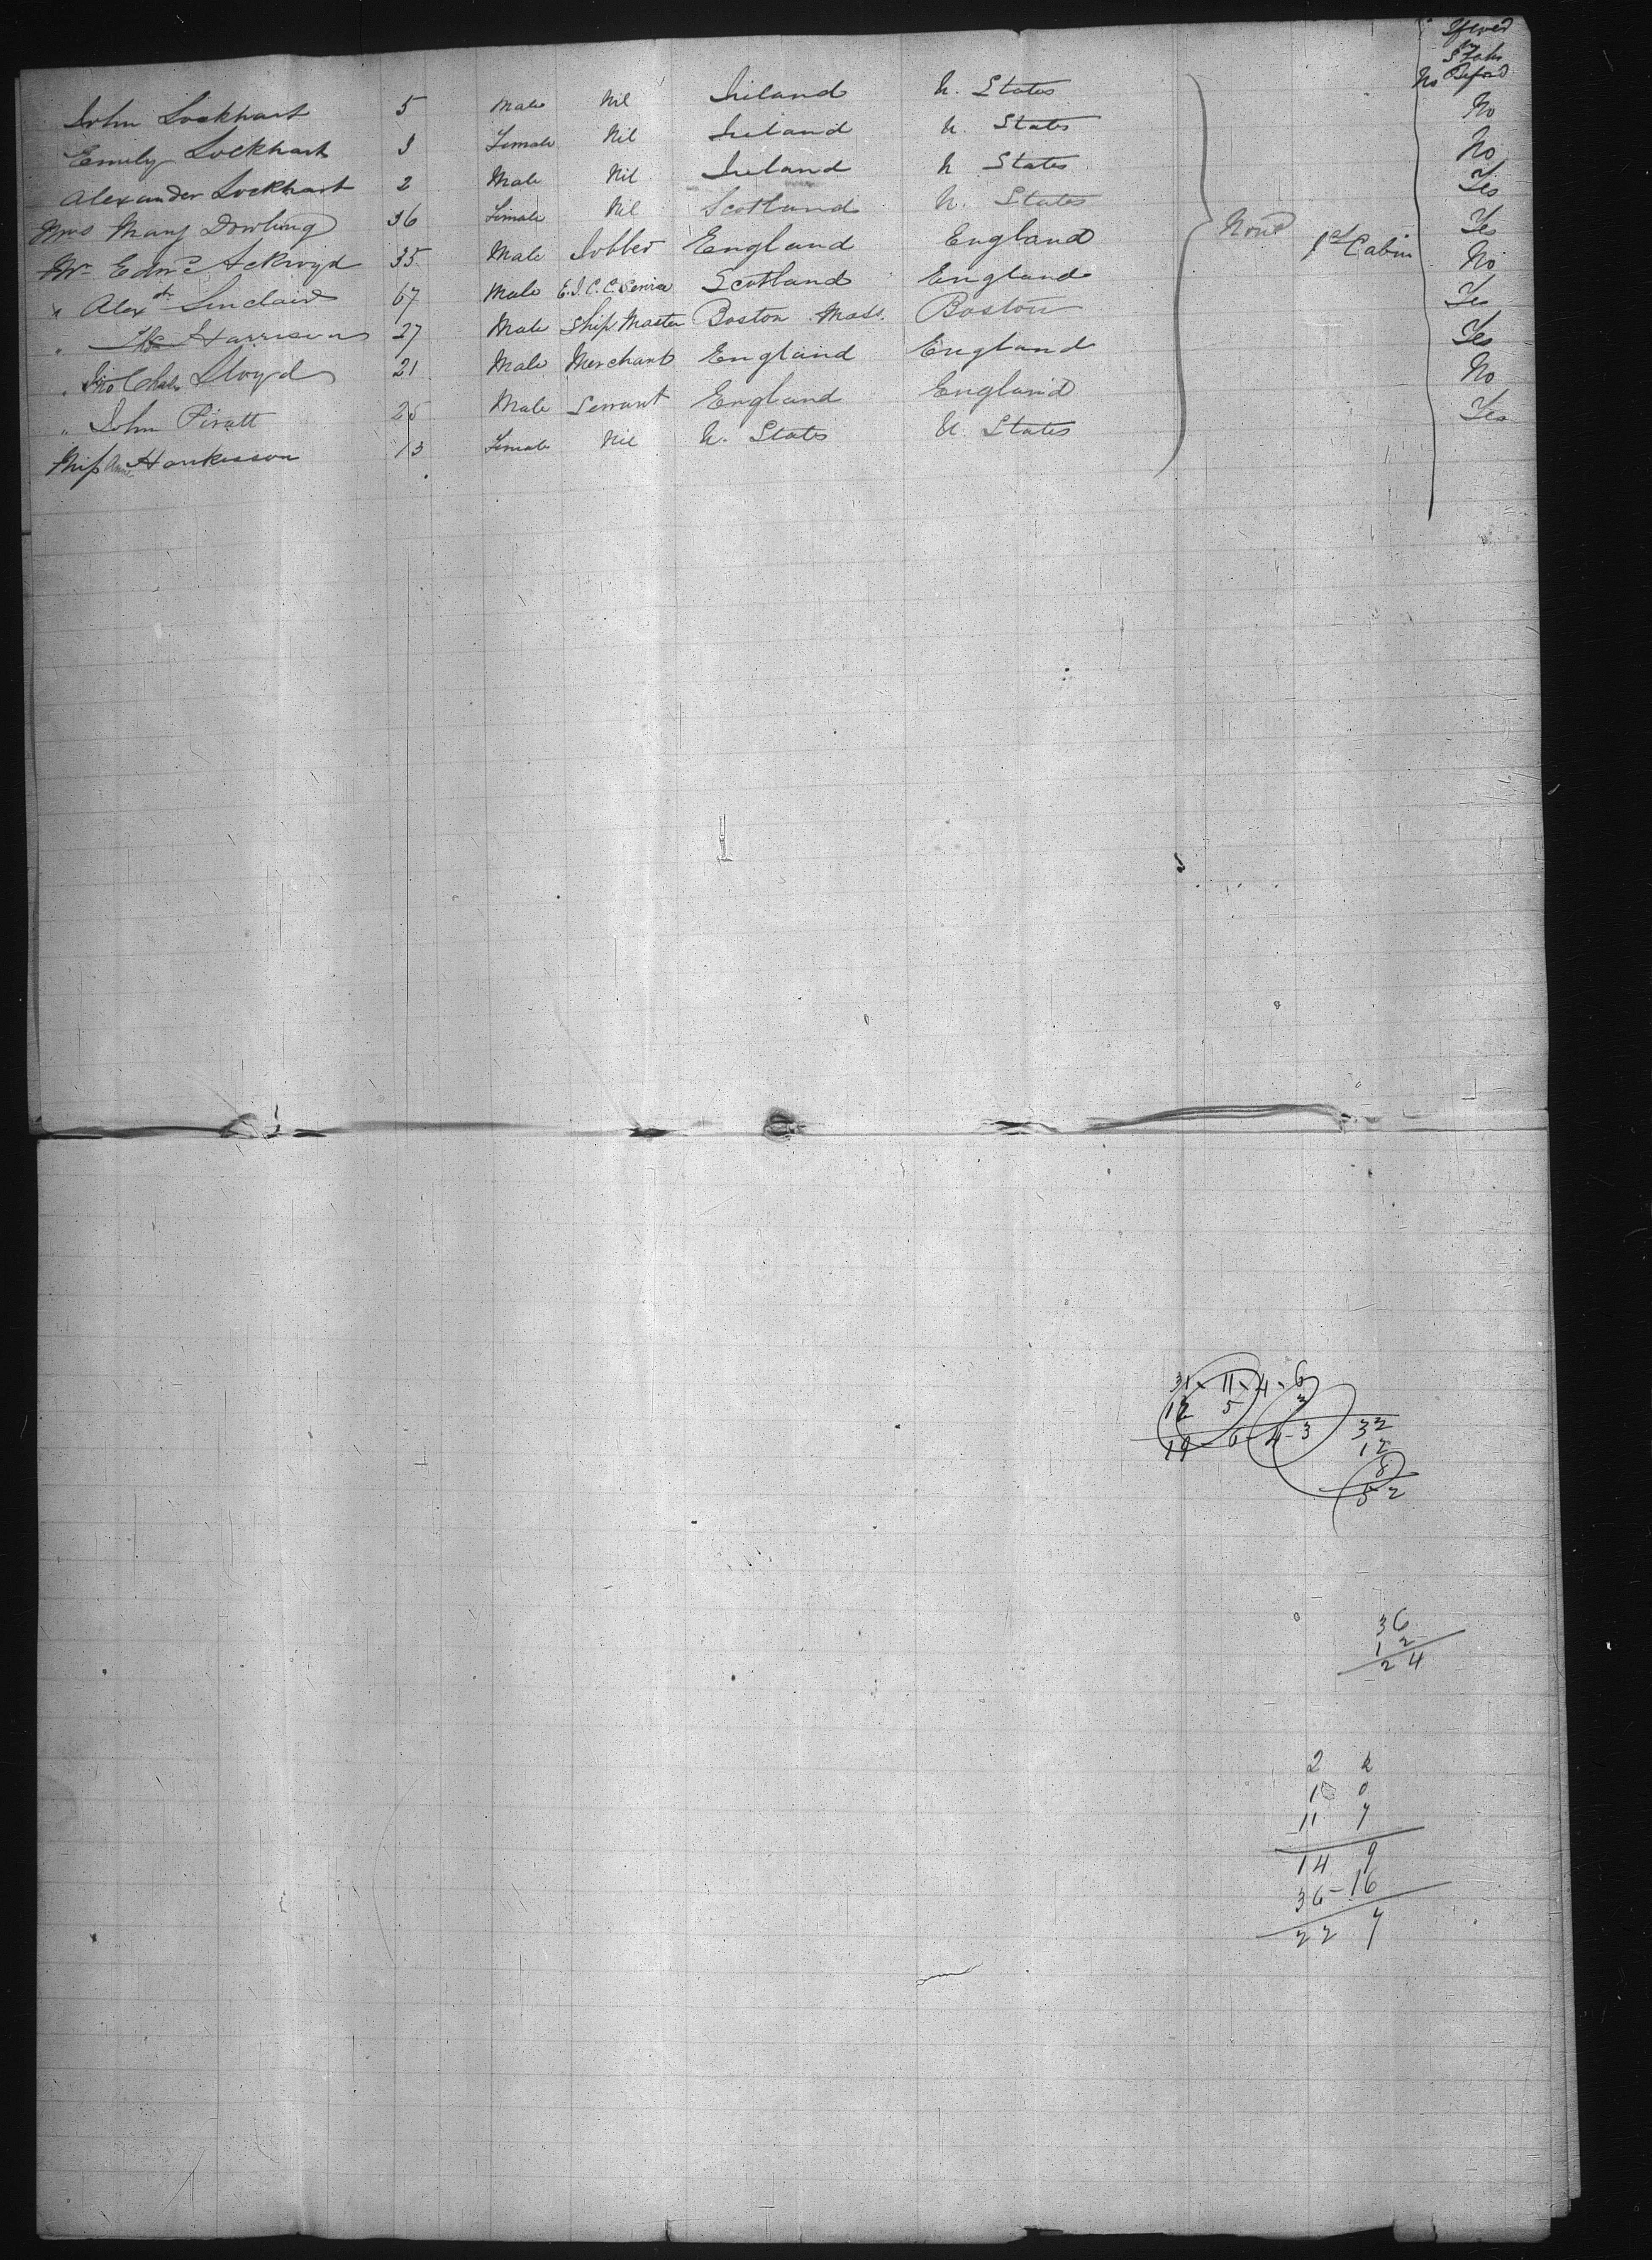 If ever
in
States
Before
John Lockhart 5 Male Nil Ireland U. States No
Emily Lockhart 3 Female Nil Ireland U. States No
Alexander Lockhart 2 Male Nil Ireland U States No
Mrs Mary Dowling 36 Female Nil Scotland U. States Yes
Mr Edwd Ackroyd 35 Male Jobber England England Yes
" Alexdr Sinclair 67 Male E.I.C.C. Service Scotland England No
" Harrison 27 Male Ship Master Boston Mass. Boston Yes
" Jno Chas Lloyd 21 Male Merchant England England Yes
" John Piratt 25 Male Servant England England No
Miss Annie Hankisson 13 Female Nil U. States U. States Yes
None 1st Cabin
31 - 11 - 4 - 6
12 5 3
19 - 6 - 4 - 3
32
12
8
52
36
12
24
2 2
1 0
11 7
14 9
36 - 16
22 7